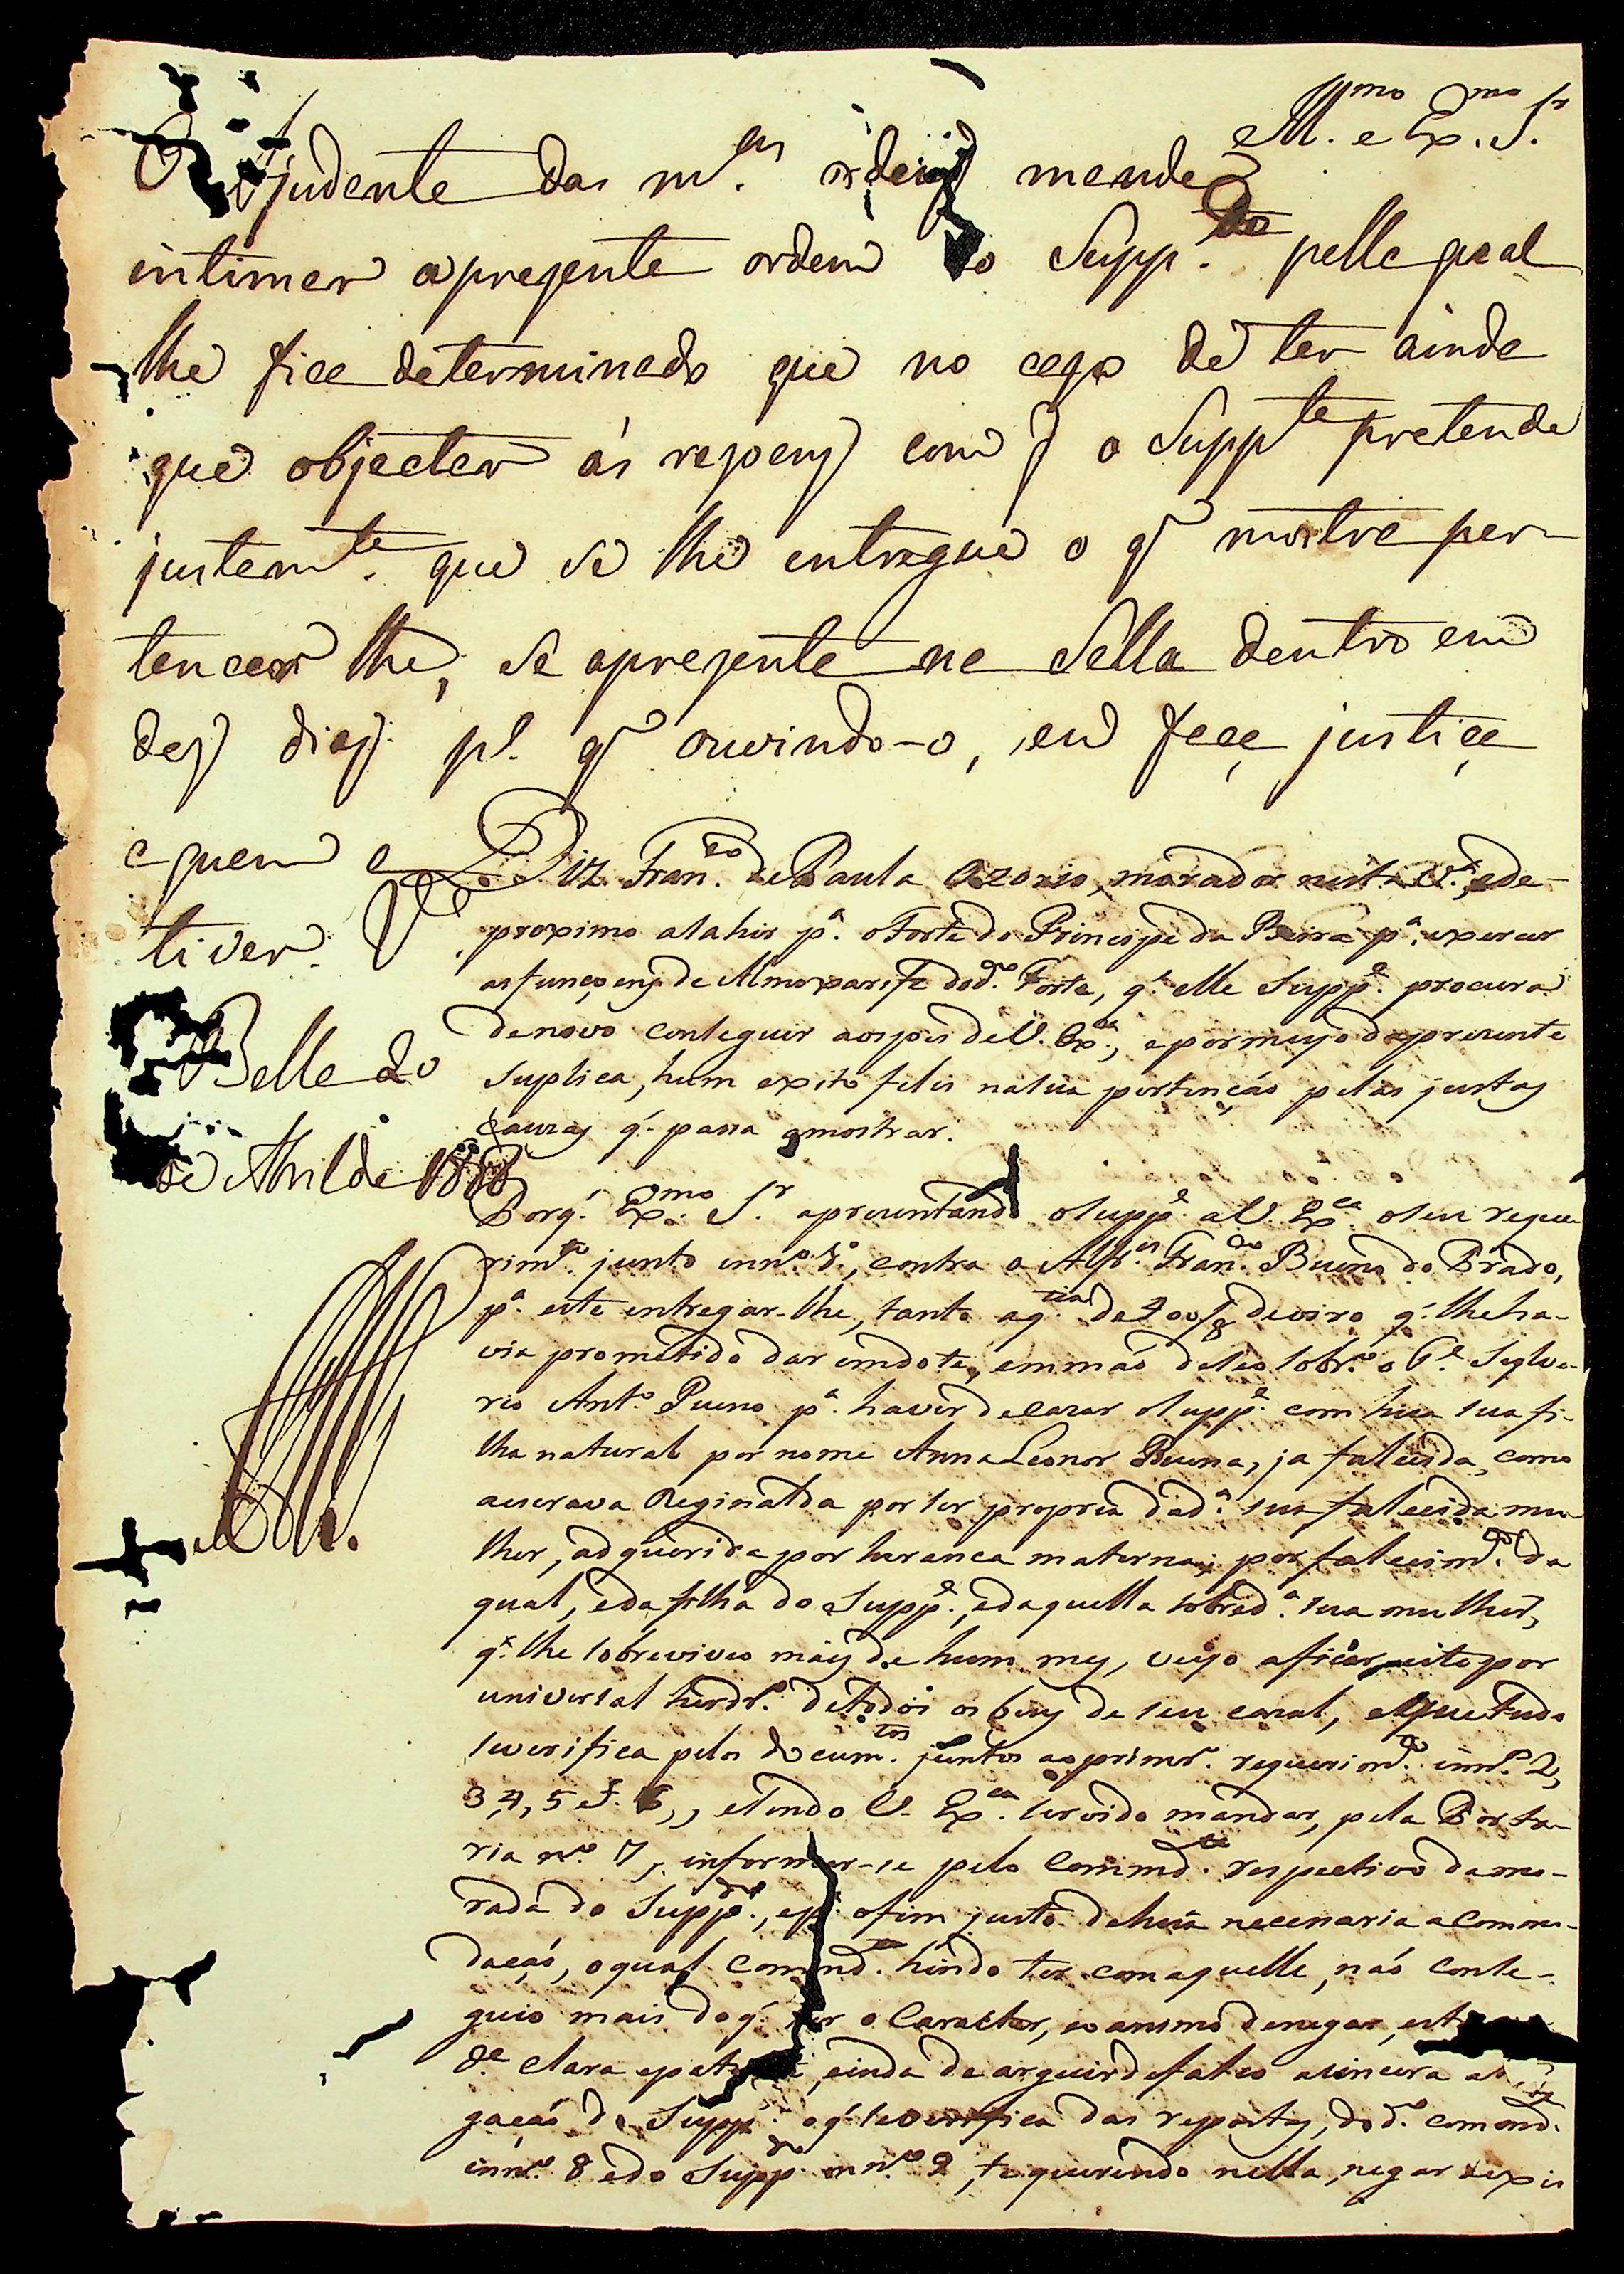 Ill.mo e Ex.mo Sr.
O Ajudente das m.as ordeñs mande
intimar a prezente ordem ao Supp.do pella qual
lhe fica determinado que no cazo de ter ainda
que objectar ás rezoens com q o Supp.te pretende
justam.te que se lhe entregue o q mostra per-
tencer lhe, se aprezente na Salla dentro em
dez dias p.a q ouvindo-o, eu faça justiça
a quem a
tiver. V.a
Bella 20
de Abril de
Diz Fran.co de Paula Ozorio, morador nesta V.a, e de-
proximo a sahir p.a o Forte do Principe da Beira p.a exercer
as funçoens de Almoxarife do d.o Forte, q.' elle Supp.e procura
de novo conseguir aos pés de V. Ex.ca, e por meyo da prezente
Suplica, hum exito felis na sua pertenção pelas justas
cauzas q.' passa a mostrar.
Porq.' Ex.mo Sr. aprezentando o Supp.e a V. Ex.ca o seu reque-
rim.to junto em n.o 1.o, contra o Alf.es Fran.co Bueno do Prado,
p.a este entregar-lhe, tanto a q.tia de 400/8 de oiro q.' lhe ha-
via prometido dar em dote, em mão de seo sobr.o o G.e Sylve-
rio Ant.o Bueno p.a haver de cazar o Supp.e com hua sua fi-
lha natural por nome Anna Leonor Buena, ja falecida, como
a escrava Reginalda por ser propria da d.a sua falecida mu-
lher, adquerida por herança materna; por falecim.to da
qual, e da filha do Supp.e, e daquella sobred.a sua mulher,
q.' lhe sobreviveo mais de hum mez, veyo a ficar este por
universal herdr.o de todos os bens de seu cazal, o que tudo
se verifica pelos docum.tos juntos ao primr.o requerim.to em n.o 2,
3, 4, 5 e f. 6,, e tendo V. Ex.ca servido mandar, pela Porta-
ria n.o 7, informar-se pelo Command.te respectivo da mo-
rada do Supp.do, e p.a o fim justo de hua necessaria acomo-
dação, o qual Command.te hindo ter com aquelle, não conse-
guio mais do q.' ver o Caracter, e o animo de negar,
de clara e ainda de arguir de falso a sincera
gação do Supp.e o q.' se verifica das repostas, do d.o comand.te
em n.o 8 e do Supp.do em n.o 9, e querendo nella, negar a exis